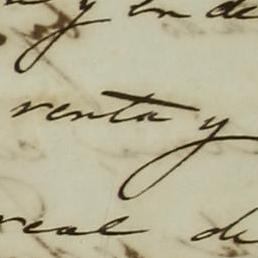 y en de
venta y
real de